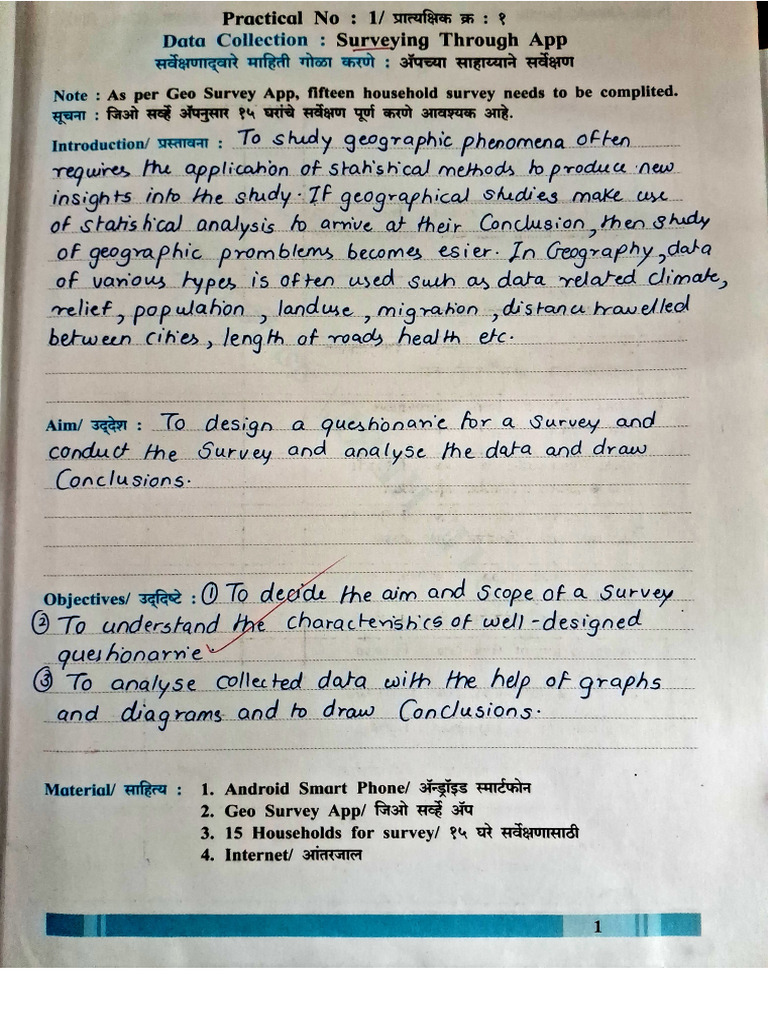 Practical No : 1/ प्रात्यक्षिक क्र : १
Data Collection : Surveying Through App
सर्वेक्षणाद्वारे माहिती गोळा करणे : ॲपच्या साहाय्याने सर्वेक्षण
Note : As per Geo Survey App, fifteen household survey needs to be complited.
सूचना : जिओ सर्व्हे ॲपनुसार १५ घरांचे सर्वेक्षण पूर्ण करणे आवश्यक आहे.
Introduction/ प्रस्तावना : To study geographic phenomena often
requires the application of statistical methods to produce new
insights into the study. If geographical studies make use
of statistical analysis to arrive at their Conclusion, then study
of geographic promblems becomes esier. In Geography, data
of various types is often used such as data related climate,
relief, population, landuse, migration, distance travelled
between cities, length of roads health etc.
Aim/ उद्देश : To design a questionarie for a survey and
conduct the survey and analyse the data and draw
Conclusions.
Objectives/ उद्दिष्टे : ① To decide the aim and scope of a survey
② To understand the characteristics of well-designed
questionarrie
③ To analyse collected data with the help of graphs
and diagrams and to draw Conclusions.
Material/ साहित्य : 1. Android Smart Phone/ ॲन्ड्रॉइड स्मार्टफोन
2. Geo Survey App/ जिओ सर्व्हे ॲप
3. 15 Households for survey/ १५ घरे सर्वेक्षणासाठी
4. Internet/ आंतरजाल
1